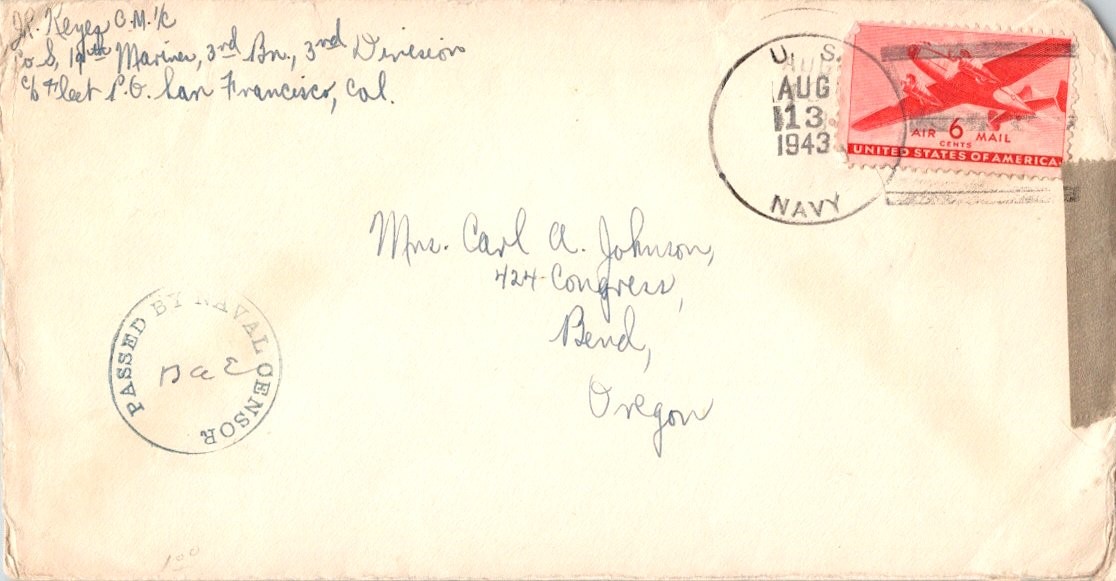 J.R. Keyes C.M. 1/c
Co S, 19th Marines, 3rd Bn., 3rd Division
c/o Fleet P.O. San Francisco, Cal.
U. S.
AUG
13
1943
NAVY
AIR 6 MAIL
CENTS
UNITED STATES OF AMERICA
Mrs. Carl A. Johnson,
424 Congress,
Bend,
Oregon
PASSED BY NAVAL CENSOR
100